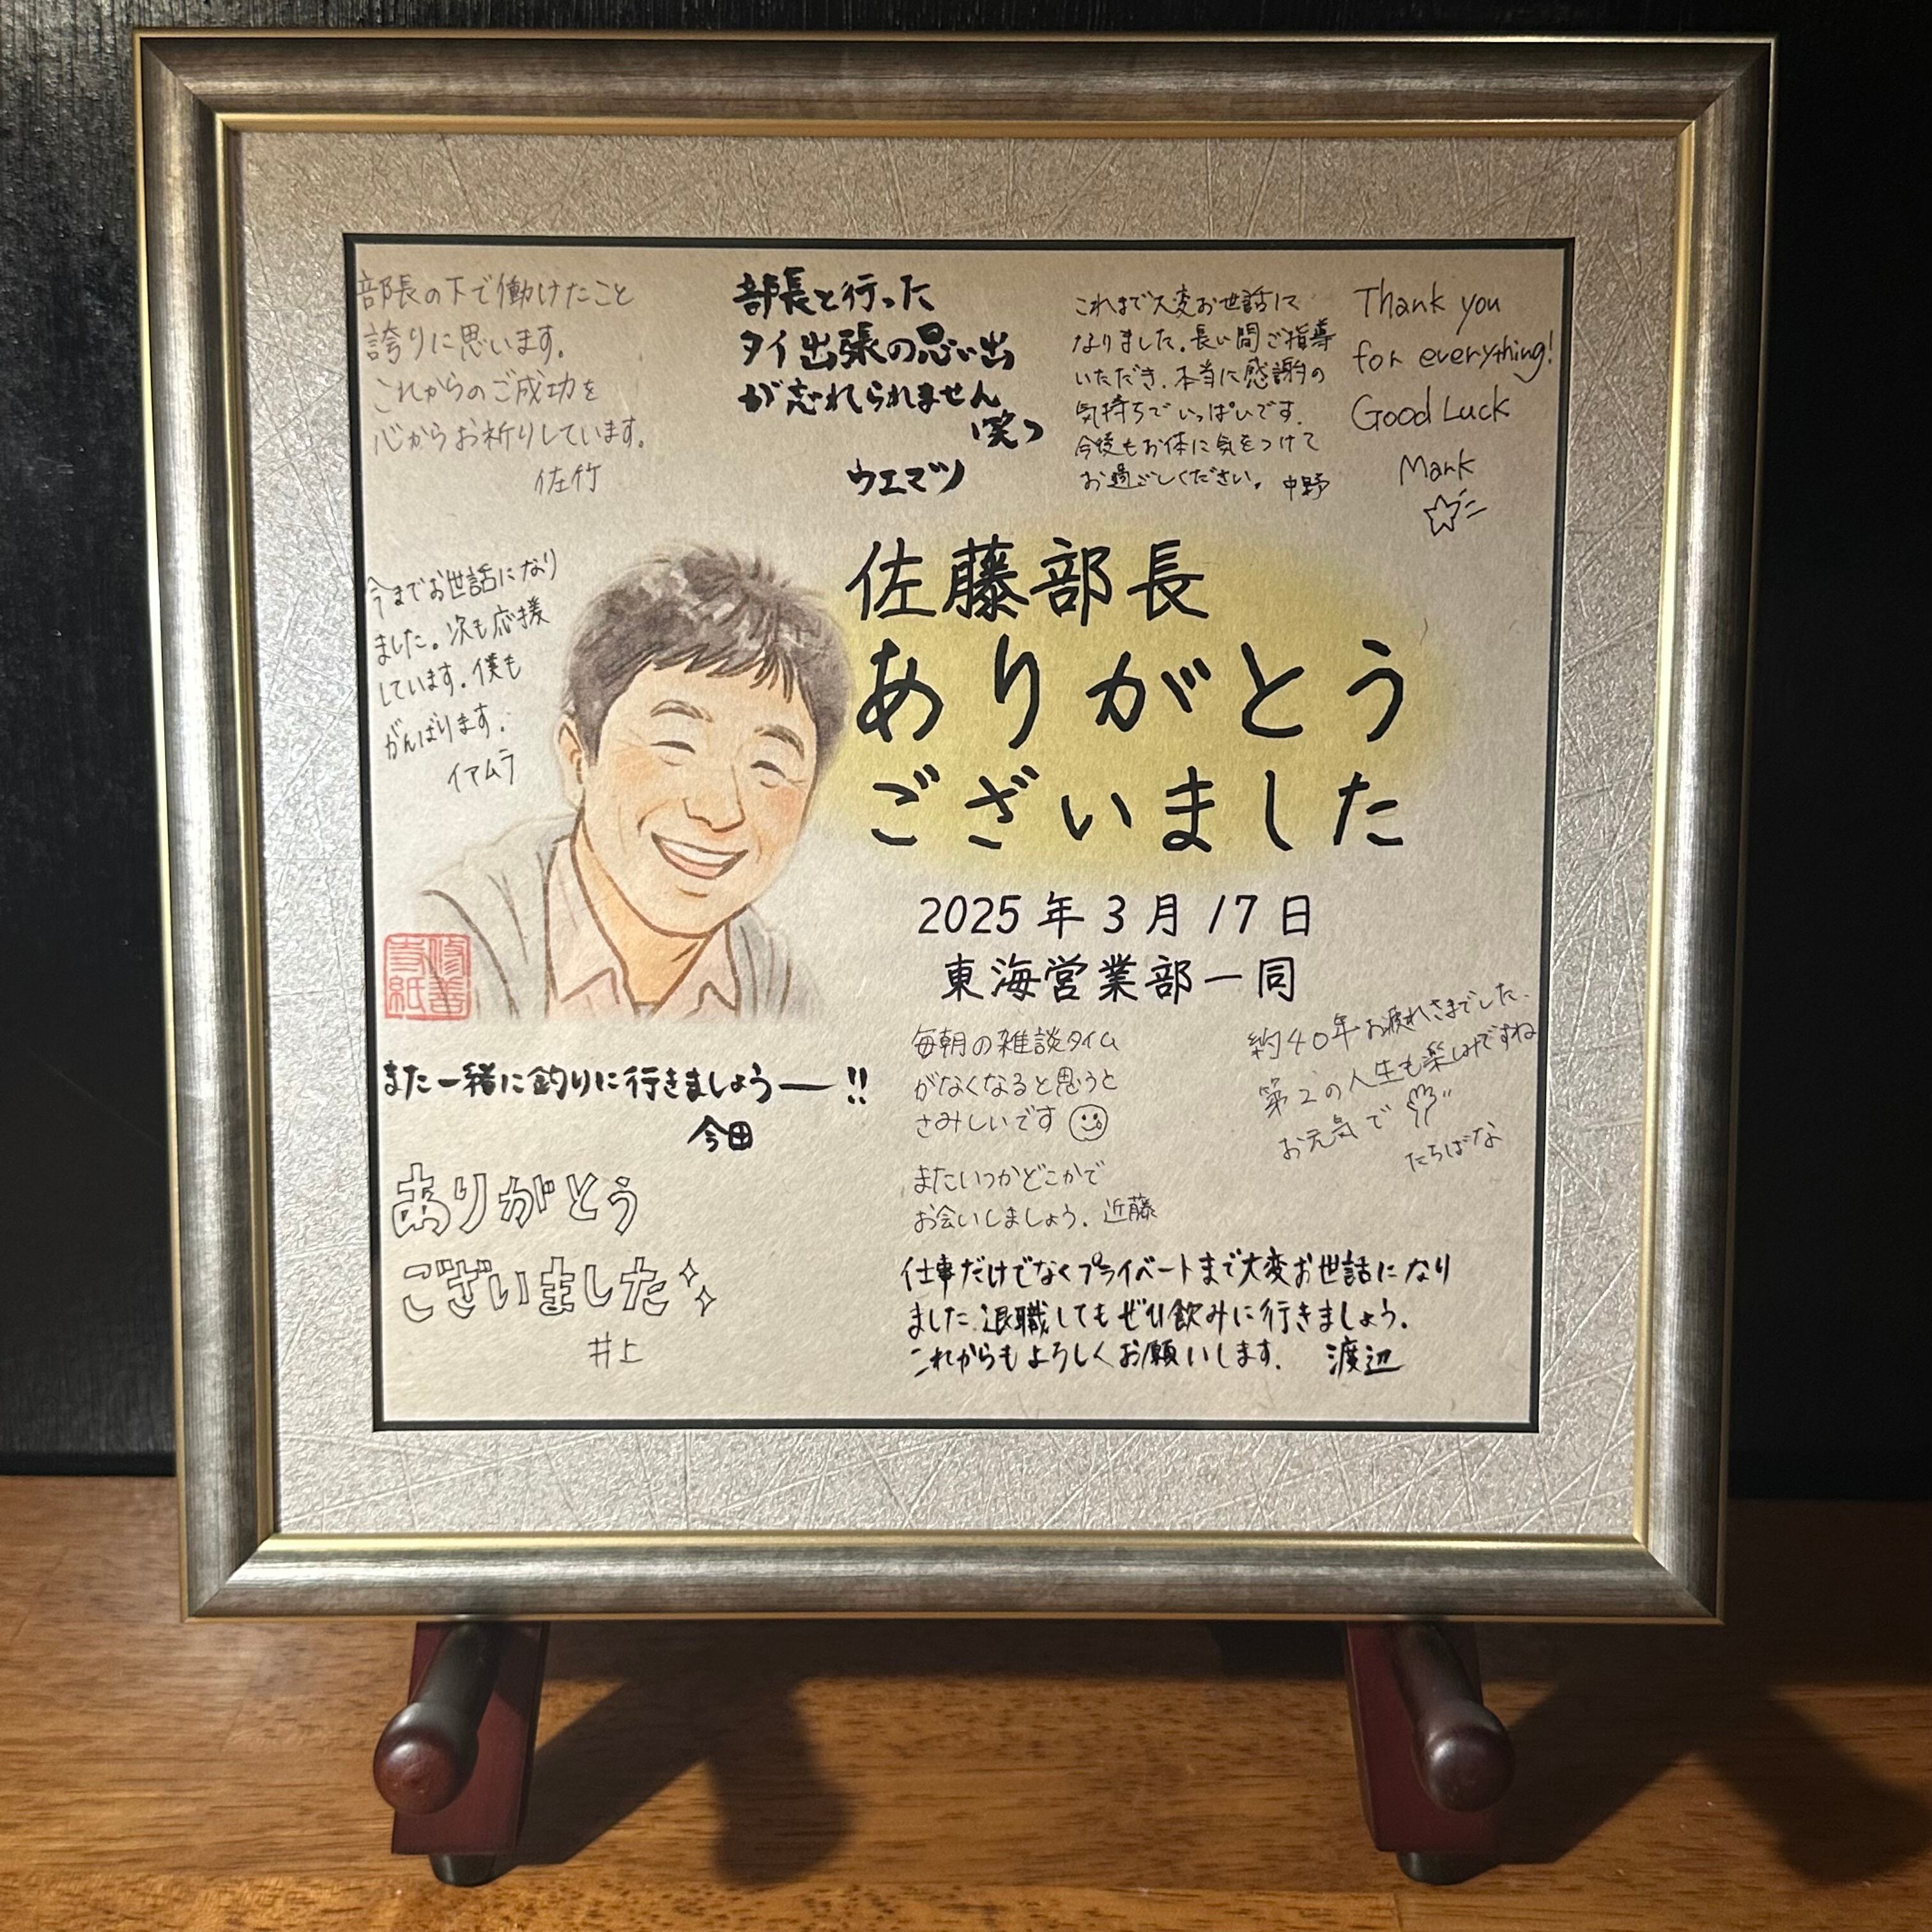 部長の下で働けたこと
誇りに思います。
これからのご成功を
心からお祈りしています。
佐竹
部長と行った
タイ出張の思い出
が忘れられません
笑っ
ウエマツ
これまで大変お世話に
なりました。長い間ご指導
いただき、本当に感謝の
気持ちでいっぱいです。
今後もお体に気をつけて
お過ごしください。 中野
Thank you
for everything!
Good Luck
Mark
今までお世話になり
ました。次も応援
しています。僕も
がんばります。
イマムラ
佐藤部長
ありがとう
ございました
2025年3月17日
東海営業部一同
修善
寺紙
また一緒に釣りに行きましょうー!!
今田
ありがとう
ございました
井上
毎朝の雑談タイム
がなくなると思うと
さみしいです
またいつかどこかで
お会いしましょう。 近藤
約40年お疲れさまでした。
第2の人生も楽しみですね
お元気で
たちばな
仕事だけでなくプライベートまで大変お世話になり
ました。退職してもぜひ飲みに行きましょう。
これからもよろしくお願いします。 渡辺